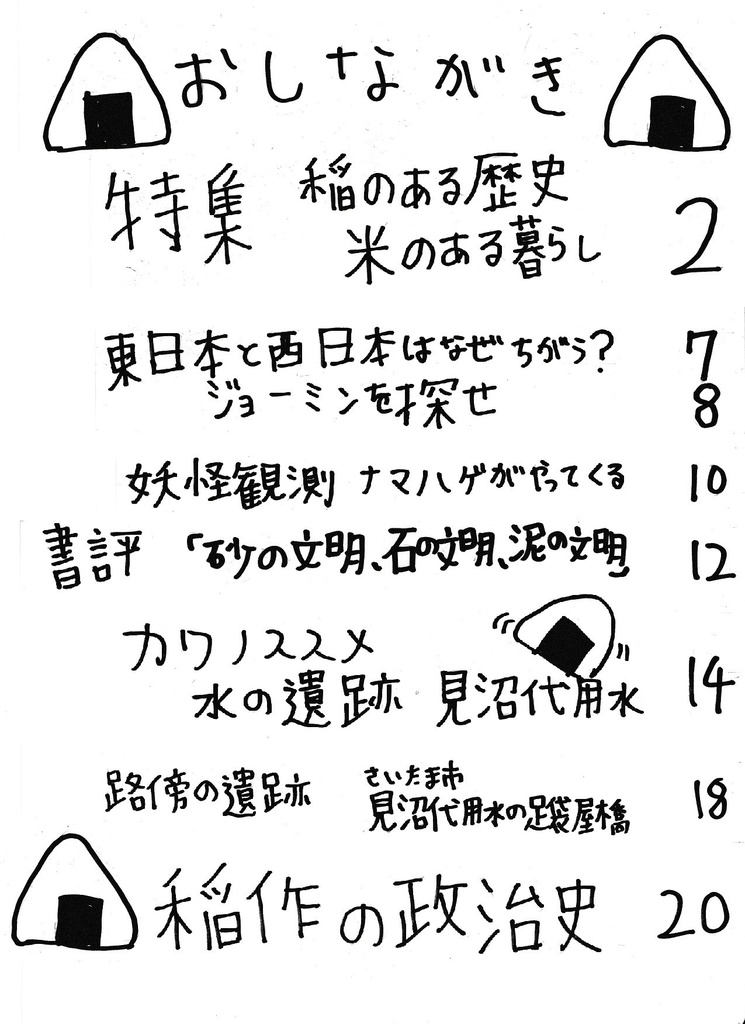 おしながき
特集 稲のある歴史
米のある暮らし 2
東日本と西日本はなぜちがう? 7
ジョーミンを探せ 8
妖怪観測 ナマハゲがやってくる 10
書評 「砂の文明、石の文明、泥の文明」 12
カワノススメ
水の遺跡 見沼代用水 14
路傍の遺跡 さいたま市
見沼代用水の足袋屋橋 18
稲作の政治史 20